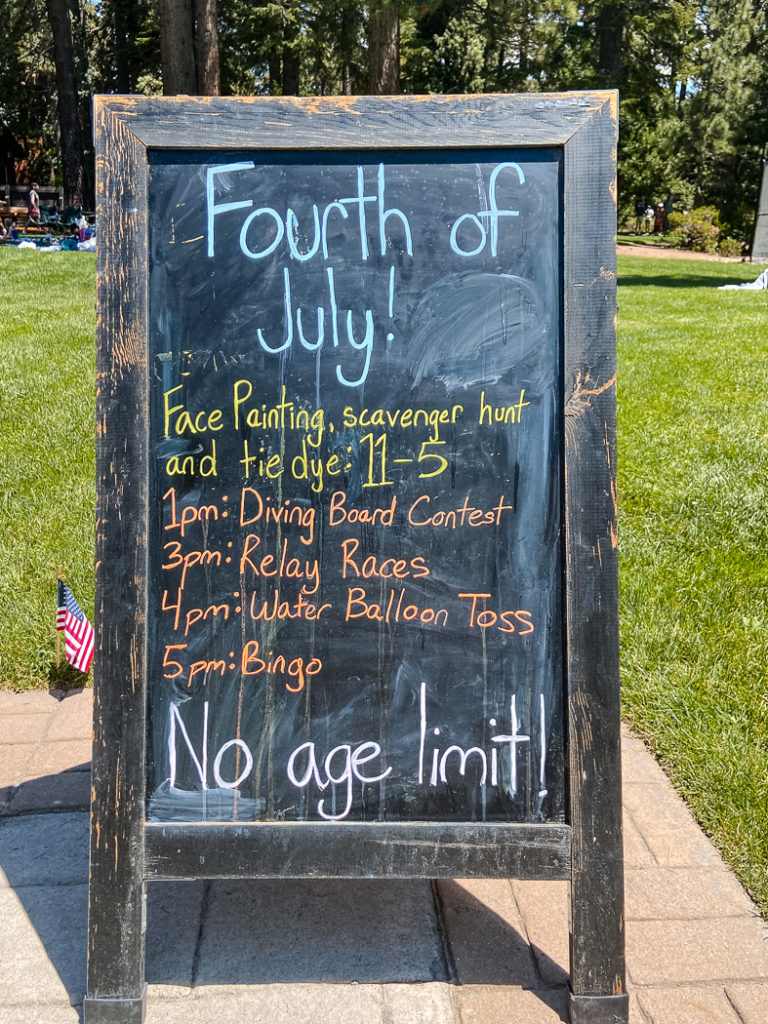 Fourth of
July!
Face Painting, scavenger hunt
and tie dye: 11-5
1pm: Diving Board Contest
3pm: Relay Races
4pm: Water Balloon Toss
5pm: Bingo
No age limit!